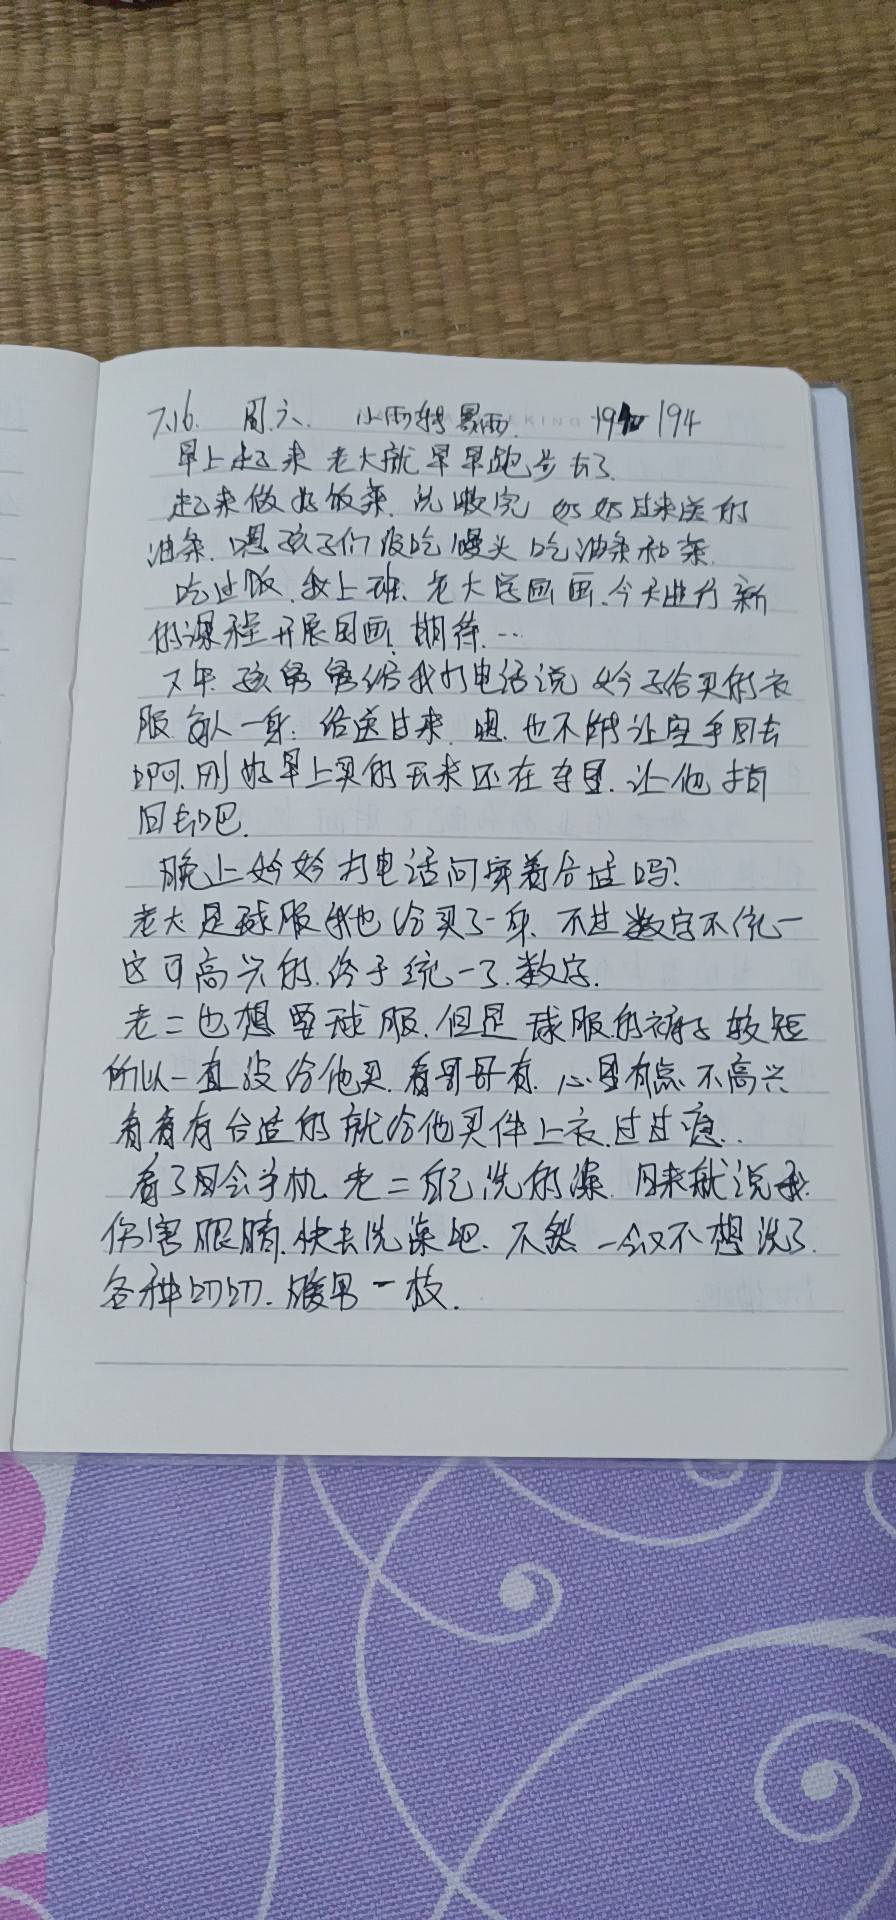 7.16. 周六. 小雨转暴雨. 194
早上起来 老大就早早跑步去了.
起来做好饭菜. 洗漱完 奶奶过来送的
油条. 嗯孩子们没吃馒头 吃油条和菜.
吃过饭. 我上班. 老大学画画. 今天进行新
的课程 开展国画. 期待. …
下午. 孩舅舅给我打电话说 妗子给买的衣
服. 每人一身. 给送过来. 嗯. 也不能让空手回去
啊. 刚好早上买的玉米还在车里. 让他捎
回去吧.
晚上妗妗打电话问穿着合适吗?
老大是球服 我也给买了一身. 不过数字不统一
这可高兴的. 终于统一了. 数字.
老二也想要球服. 但是球服的裤子较短
所以一直没给他买. 看哥哥有. 心里有点不高兴
看看有合适的就给他买件上衣. 过过瘾..
看了回会手机 老二自己洗的澡. 回来就说我.
伤害眼睛. 快去洗澡吧. 不然一会又不想洗了.
各种叨叨. 暖男一枚.